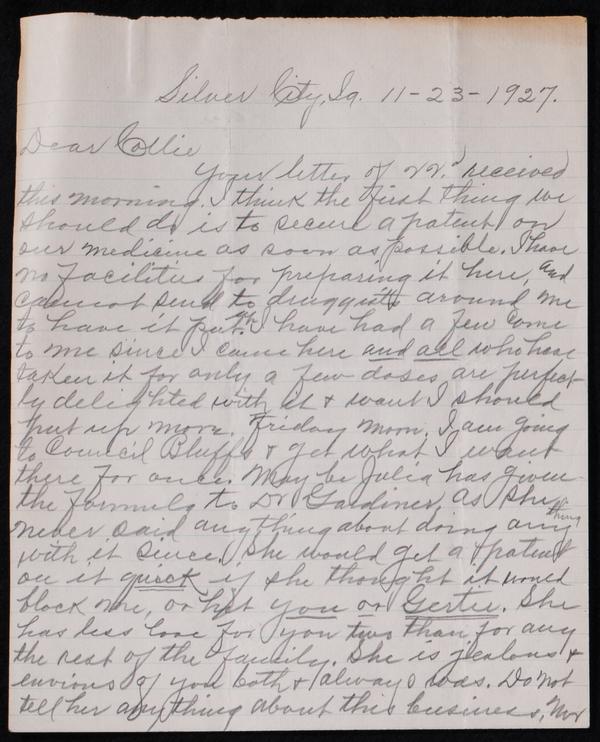 Silver City, Ia. 11-23-1927.
Dear Collie
Your letter of 22nd received
this morning. I think the first thing we
should do is to secure a patent on
our medicine as soon as possible. I have
no facilities for preparing it here, and
cannot send to druggists around me
to have it put up. I have had a few come
to me since I came here and all who have
taken it for only a few doses are perfect-
ly delighted with it & want I should
put up more. Friday morn. I am going
to Council Bluffs & get what I want
there for once. May be Julia has given
the formula to Dr Gardiner, as she
never said anything about doing any thing
with it since. She would get a patent
on it quick if she thought it would
block me, or hit you or Gertie. She
has less love for you two than for any
the rest of the family. She is jealous &
envious of you both & always was. Do not
tell her anything about this business, nor